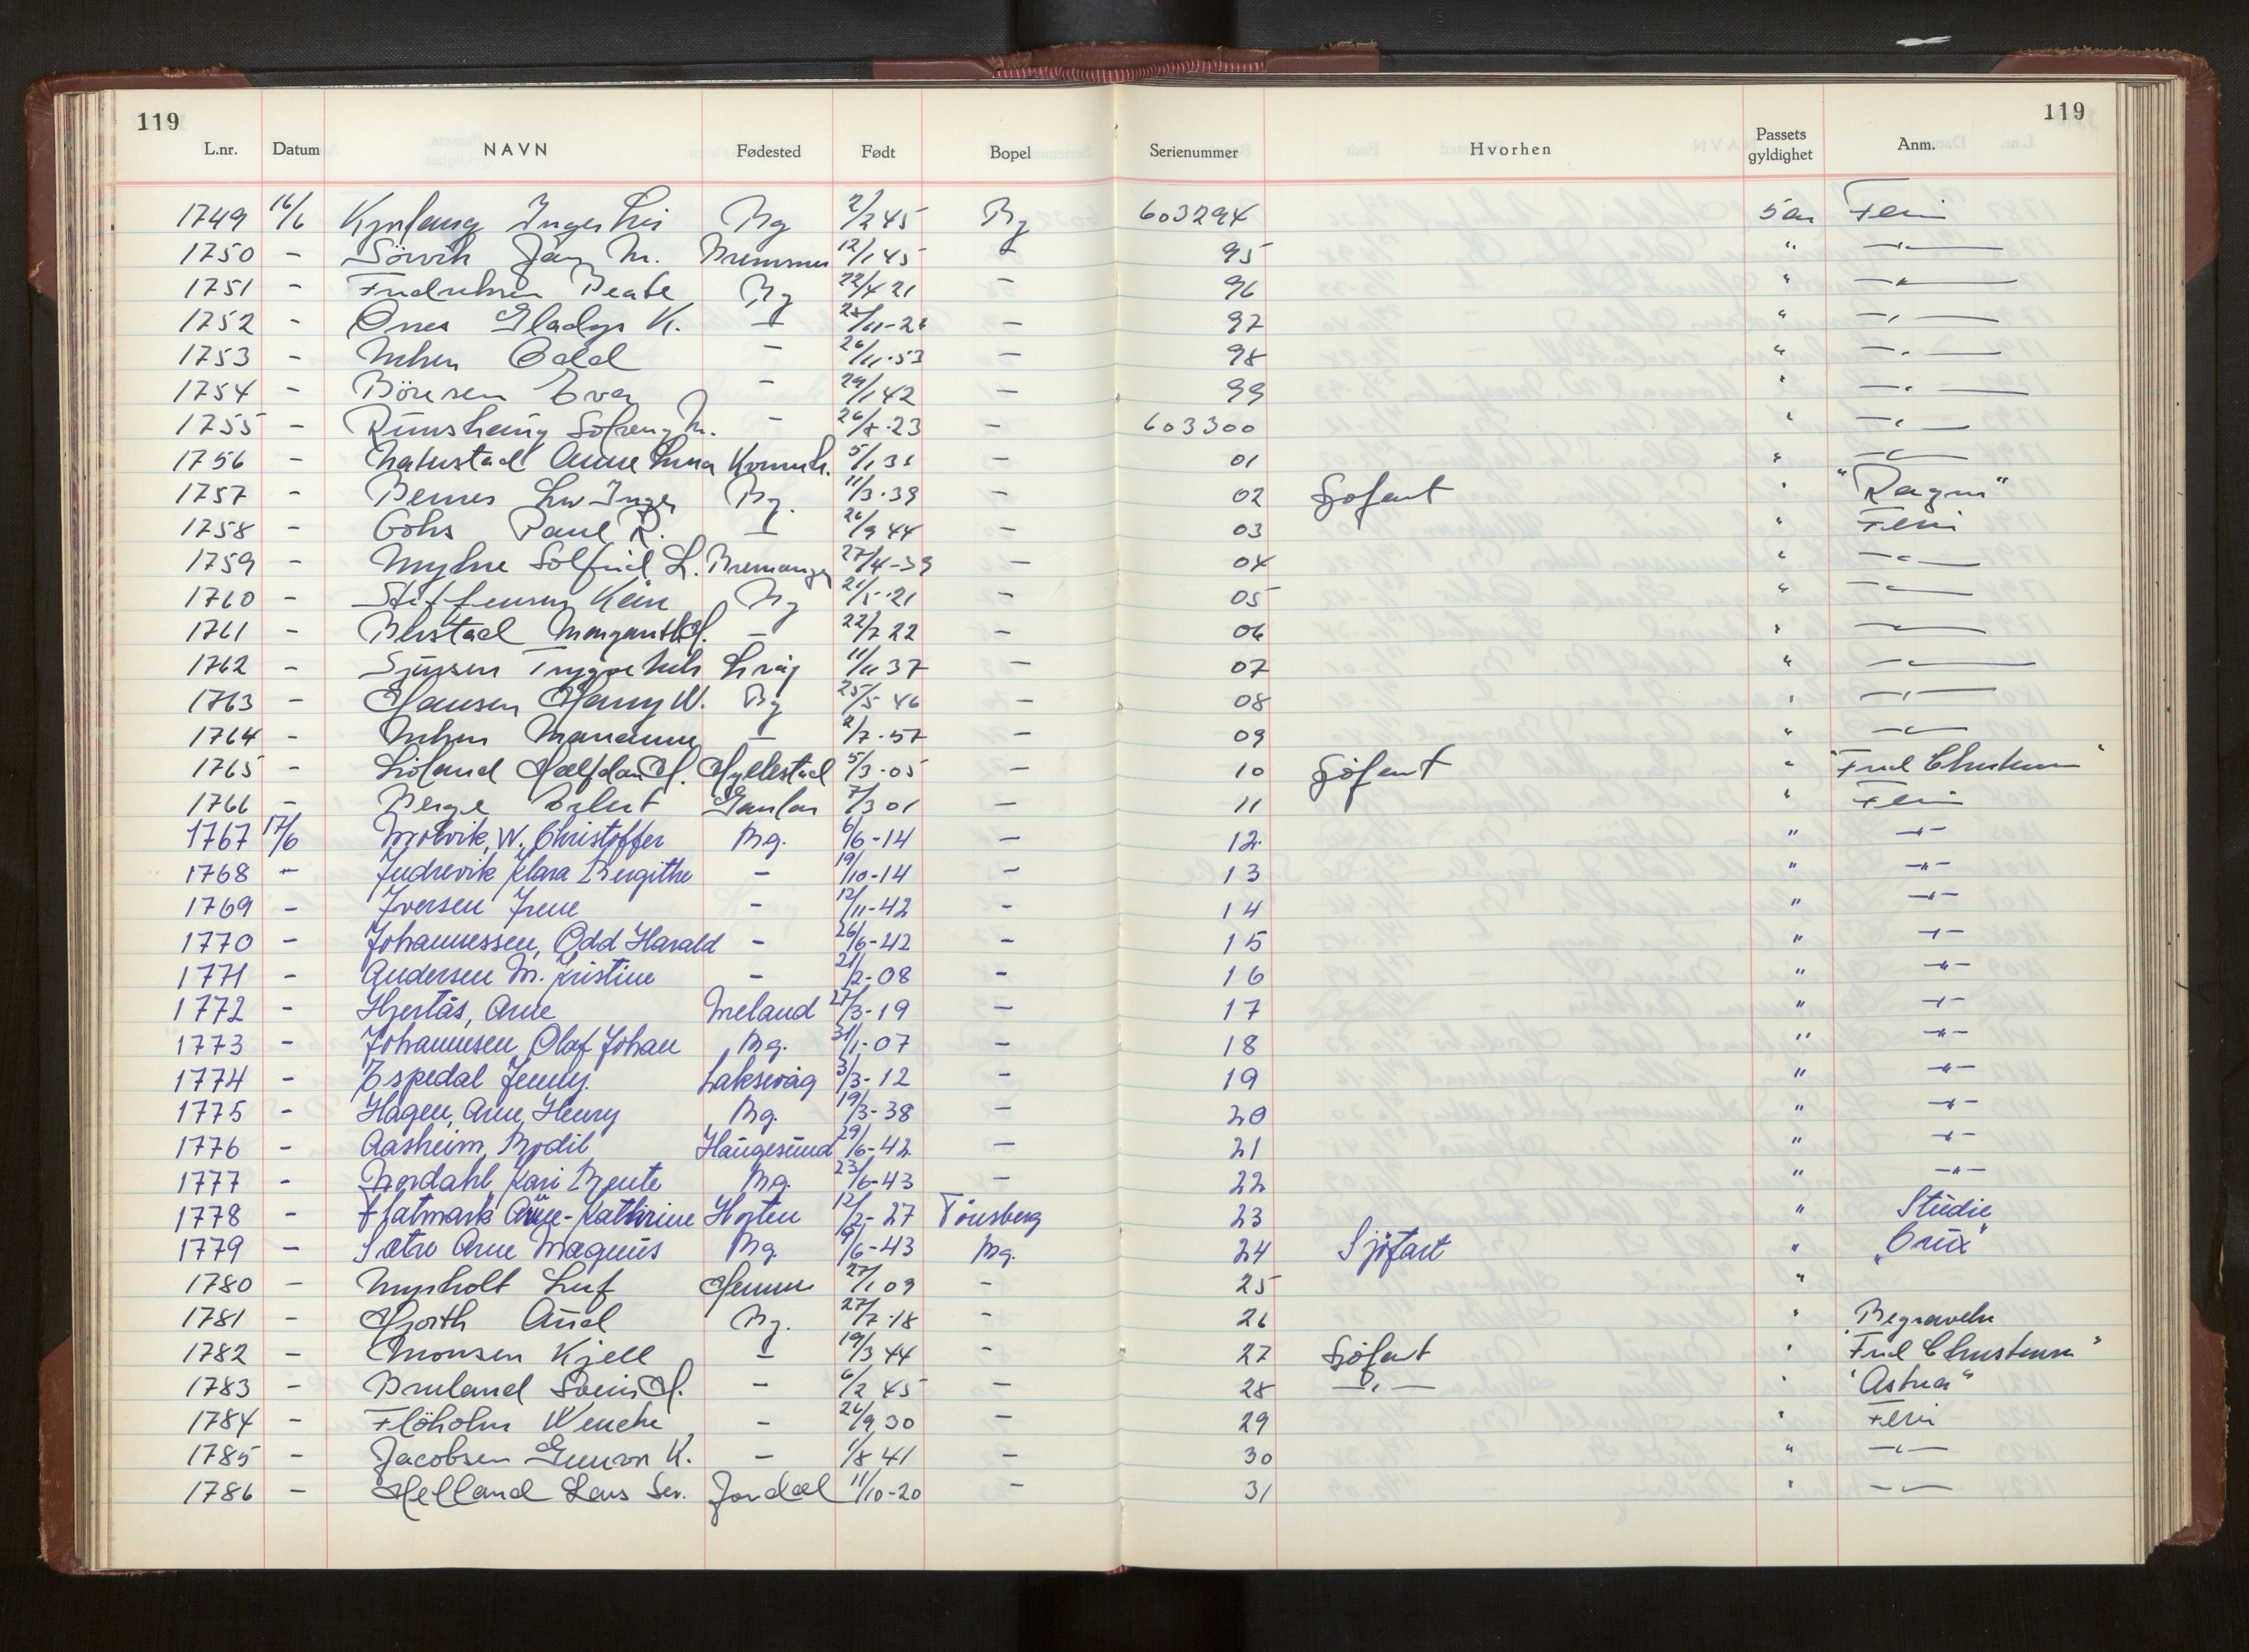 119 119
L.nr. Datum NAVN Fødested Født Bopel Serienummer Hvorhen Passets gyldighet Anm.
1749 16/6 Inger Bg 2/2 45 Bg 603294 5 år Feri
1750 - Sörvik Jan M. 12/1 45 - 95 " -"-
1751 - Fredriksen Beate Bg 22/4 21 - 96 " -"-
1752 - Ones Gladys K. - - 97 " -"-
1753 - Odd - 26/11-53 - 98 " -"-
1754 - Börresen Eva - 29/1 42 - 99 " -"-
1755 - Solveig M. - 26/8-23 - 603300 " -"-
1756 - Anne - 01 " -"-
1757 - Inger Bg. 11/3-39 - 02 Sjøfart " "Ragni"
1758 - Göhs Paul R. - 26/9 44 - 03 " Feri
1759 - Solfrid L. Bremanger 27/4-39 - 04 " -"-
1760 - Steffensen Bg 21/5-21 - 05 " -"-
1761 - 22/7 22 - 06 " -"-
1762 - Trygve 11/11 37 - 07 " -"-
1763 - Hansen Harry W. Bg 25/5 46 - 08 " -"-
1764 - Marianne - 2/7-57 - 09 " -"-
1765 - Halfdan H. Hyllestad 5/3-05 - 10 Sjøfart "
1766 - Berge Gaular 7/3 01 - 11 " Feri
1767 17/6 Molvik, W. Christoffer Bg. 6/6-14 - 12 " -"-
1768 - Indrevik Klara Bergithe - 19/10-14 - 13 " -"-
1769 - Iversen Irene - 12/11-42 - 14 " -"-
1770 - Johannessen, Odd Harald - 26/6-42 - 15 " -"-
1771 - Andersen M. Kristine - 21/2-08 - 16 " -"-
1772 - Hjertås, Arne Meland 27/3-19 - 17 " -"-
1773 - Johannesen, Olaf Johan Bg. 31/1-07 - 18 " -"-
1774 - Espedal Jenny. Laksevåg 3/3-12 - 19 " -"-
1775 - Hagen, Arne Henry Bg. 19/3-38 - 20 " -"-
1776 - Aasheim, Bodil Haugesund 29/6-42 - 21 " -"-
1777 - Nordahl, Kari Bente Bg. 23/6-43 - 22 " -"-
1778 - Flatmark Anne-Kathrine Horten 12/2-27 Tönsberg 23 " Studie
1779 - Sætre Arne Magnus Bg. 6-43 Bg. 24 Sjöfart " "Crux"
1780 - Leif 27/1 09 - 25 "
1781 - Hjorth Aud Bg. 27/7-18 - 26 " Begravelse
1782 - Monsen Kjell - 19/3 44 - 27 Sjøfart " "Fred Christensen"
1783 - Svein H. - 6/2 45 - 28 -"- " "Astrea"
1784 - Flöholm Wenche - 26/9 30 - 29 " Feri
1785 - Jacobsen Gunvor K. - 1/8 41 - 30 " -"-
1786 - Helland Lars Sev. Jondal 11/10-20 - 31 " -"-